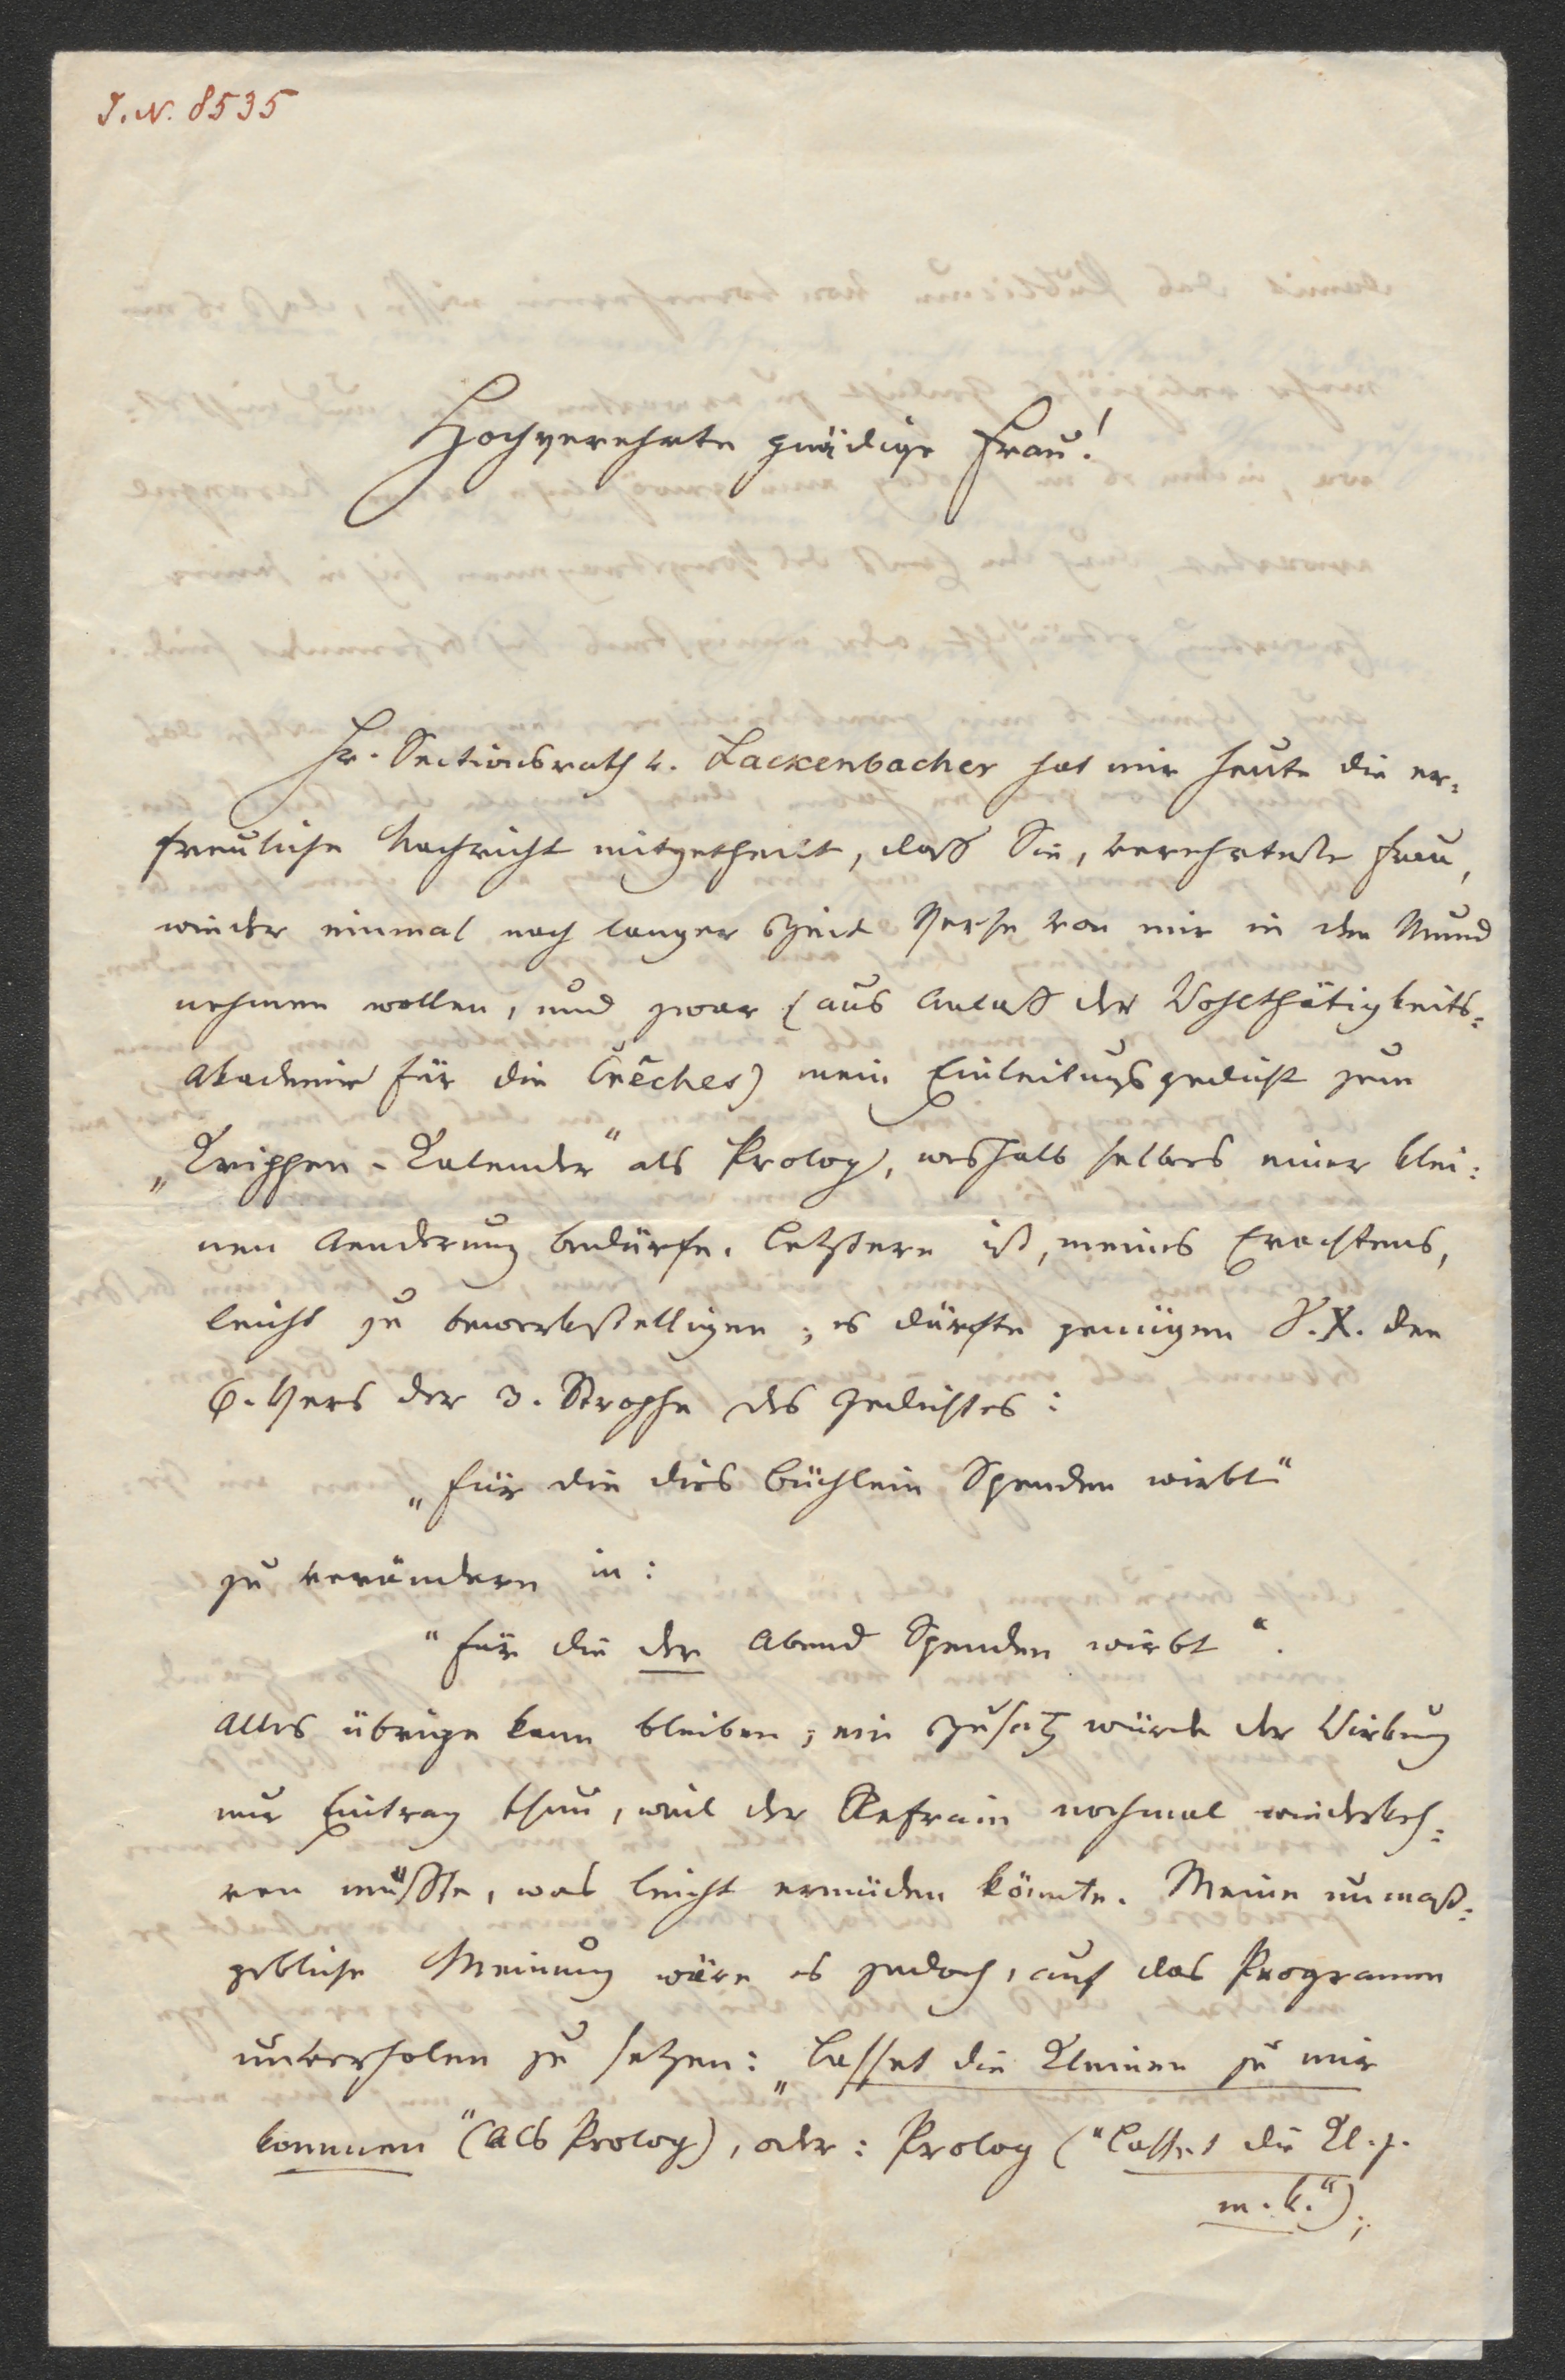 J. N. 8535
Hochverehrte gnädige Frau!
Hr. Sectionsrath v. Lackenbacher hat mir heute die er=
freuliche Nachricht mitgetheilt, daß Sie, verehrteste Frau,
wieder einmal nach langer Zeit Verse von mir in den Mund
nehmen wollen, und zwar (aus Anlaß der Wohlthätigkeits=
Akademie für die Crêches) mein Einleitungsgedicht zum
„Krippen-Kalender“ als Prolog, weshalb selbes einer klei=
nen Aenderung bedürfe. Letztere ist, meines Erachtens,
leicht zu bewerkstelligen; es dürfte genügen den
6. Vers der 3. Strophe des Gedichtes:
„Für die dies Büchlein Spenden wirbt“
zu verändern in:
„Für die der Abend Spenden wirbt“.
Alles übrige kann bleiben; ein Zusatz würde der Wirkung
nur Eintrag thun, weil der Refrain nochmal wiederkeh=
ren müßte, was leicht ermüden könnte. Meine unmaß=
gebliche Meinung wäre es jedoch, auf das Programm
unverholen zu setzen: „Lasset die Kleinen zu mir
kommen“ (als Prolog), oder: Prolog („Lasset die Kl. z.
m. k.“);